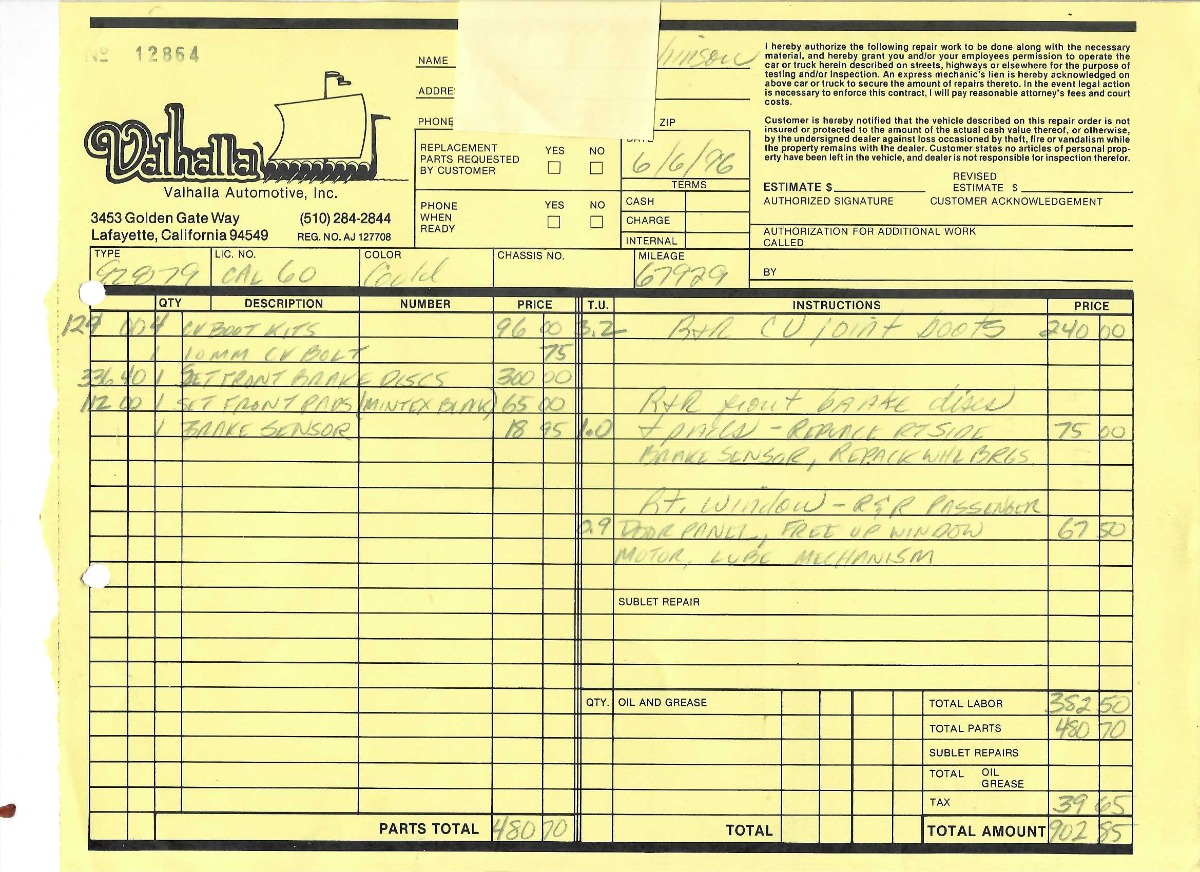 Nº 12864
Valhalla
Valhalla Automotive, Inc.
3453 Golden Gate Way (510) 284-2844
Lafayette, California 94549 REG. NO. AJ 127708
NAME
ADDRE
PHONE ZIP
REPLACEMENT PARTS REQUESTED BY CUSTOMER YES NO
PHONE WHEN READY YES NO
6/6/96
TERMS
CASH
CHARGE
INTERNAL
I hereby authorize the following repair work to be done along with the necessary
material, and hereby grant you and/or your employees permission to operate the
car or truck herein described on streets, highways or elsewhere for the purpose of
testing and/or inspection. An express mechanic's lien is hereby acknowledged on
above car or truck to secure the amount of repairs thereto. In the event legal action
is necessary to enforce this contract, I will pay reasonable attorney's fees and court
costs.
Customer is hereby notified that the vehicle described on this repair order is not
insured or protected to the amount of the actual cash value thereof, or otherwise,
by the undersigned dealer against loss occasioned by theft, fire or vandalism while
the property remains with the dealer. Customer states no articles of personal prop-
erty have been left in the vehicle, and dealer is not responsible for inspection therefor.
ESTIMATE $ REVISED ESTIMATE $
AUTHORIZED SIGNATURE CUSTOMER ACKNOWLEDGEMENT
AUTHORIZATION FOR ADDITIONAL WORK
CALLED
BY
TYPE LIC. NO. COLOR CHASSIS NO. MILEAGE
CAL 60 67929
QTY DESCRIPTION NUMBER PRICE T.U. INSTRUCTIONS PRICE
4 CV BOOT KITS 96 00 3.2 R+R CV joint boots 240 00
1 10MM CV BOLT 75
336 40 1 SET FRONT BRAKE DISCS 300 00
112 00 1 SET FRONT PADS (MINTEX BLAK) 65 00 R+R front brake discs
1 BRAKE SENSOR 18 95 1.0 + pads - REPLACE RT SIDE 75 00
BRAKE SENSOR, REPACK WHL BRGS.
Rt. Window - R&R PASSENGER
0.9 DOOR PANEL, FREE UP WINDOW 67 50
MOTOR, LUBE MECHANISM
SUBLET REPAIR
QTY. OIL AND GREASE
TOTAL LABOR 382 50
TOTAL PARTS 480 70
SUBLET REPAIRS
TOTAL OIL GREASE
TAX 39 65
PARTS TOTAL 480 70 TOTAL TOTAL AMOUNT 902 85